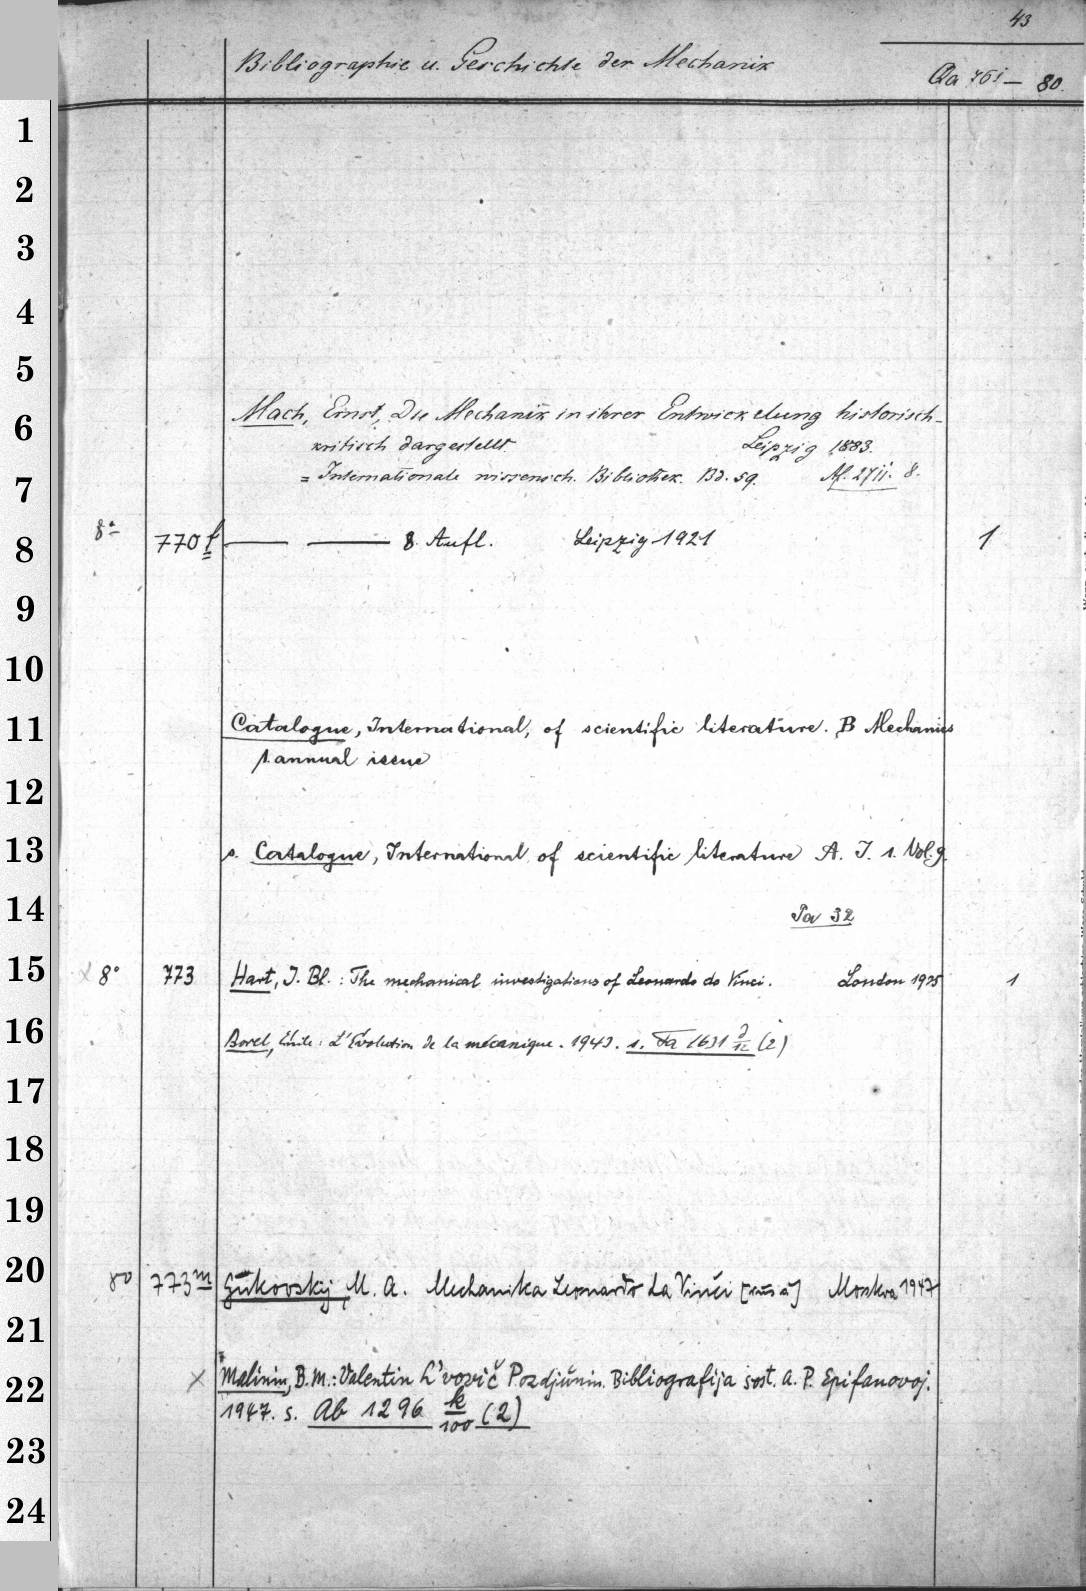 43
Bibliographie u. Geschichte der Mechanik
Qa 761 — 80.
1
2
3
4
5
6 Mach, Ernst, Die Mechanik in ihrer Entwickelung historisch-
kritisch dargestellt. Leipzig 1883.
7 = Internationale wissensch. Bibliothek. Bd. 59. Af. 2711. 8.
8 8° 770 f — — 8. Aufl. Leipzig 1921 1
9
10
11 Catalogue, International, of scientific literature. B Mechanics
1. annual issue
12
13 s. Catalogue, International of scientific literature A. J. 1. Vol. 9.
14 32
15 x 8° 773 Hart, I. Bl.: The mechanical investigations of Leonardo do Vinci. London 1925 1
16 Borel, Émile: L'Évolution de la mécanique. 1943. s. (2)
17
18
19
20 8° 773 m Gukovskij, M. A. Mechanika Leonardo La Vinči Moskva 1947
21
22 x Malinin, B. M.: Valentin L'vovič Pozdjunin. Bibliografija sost. A. P. Epifanovoj.
1947. s. Ab 1296 k/100 (2)
23
24